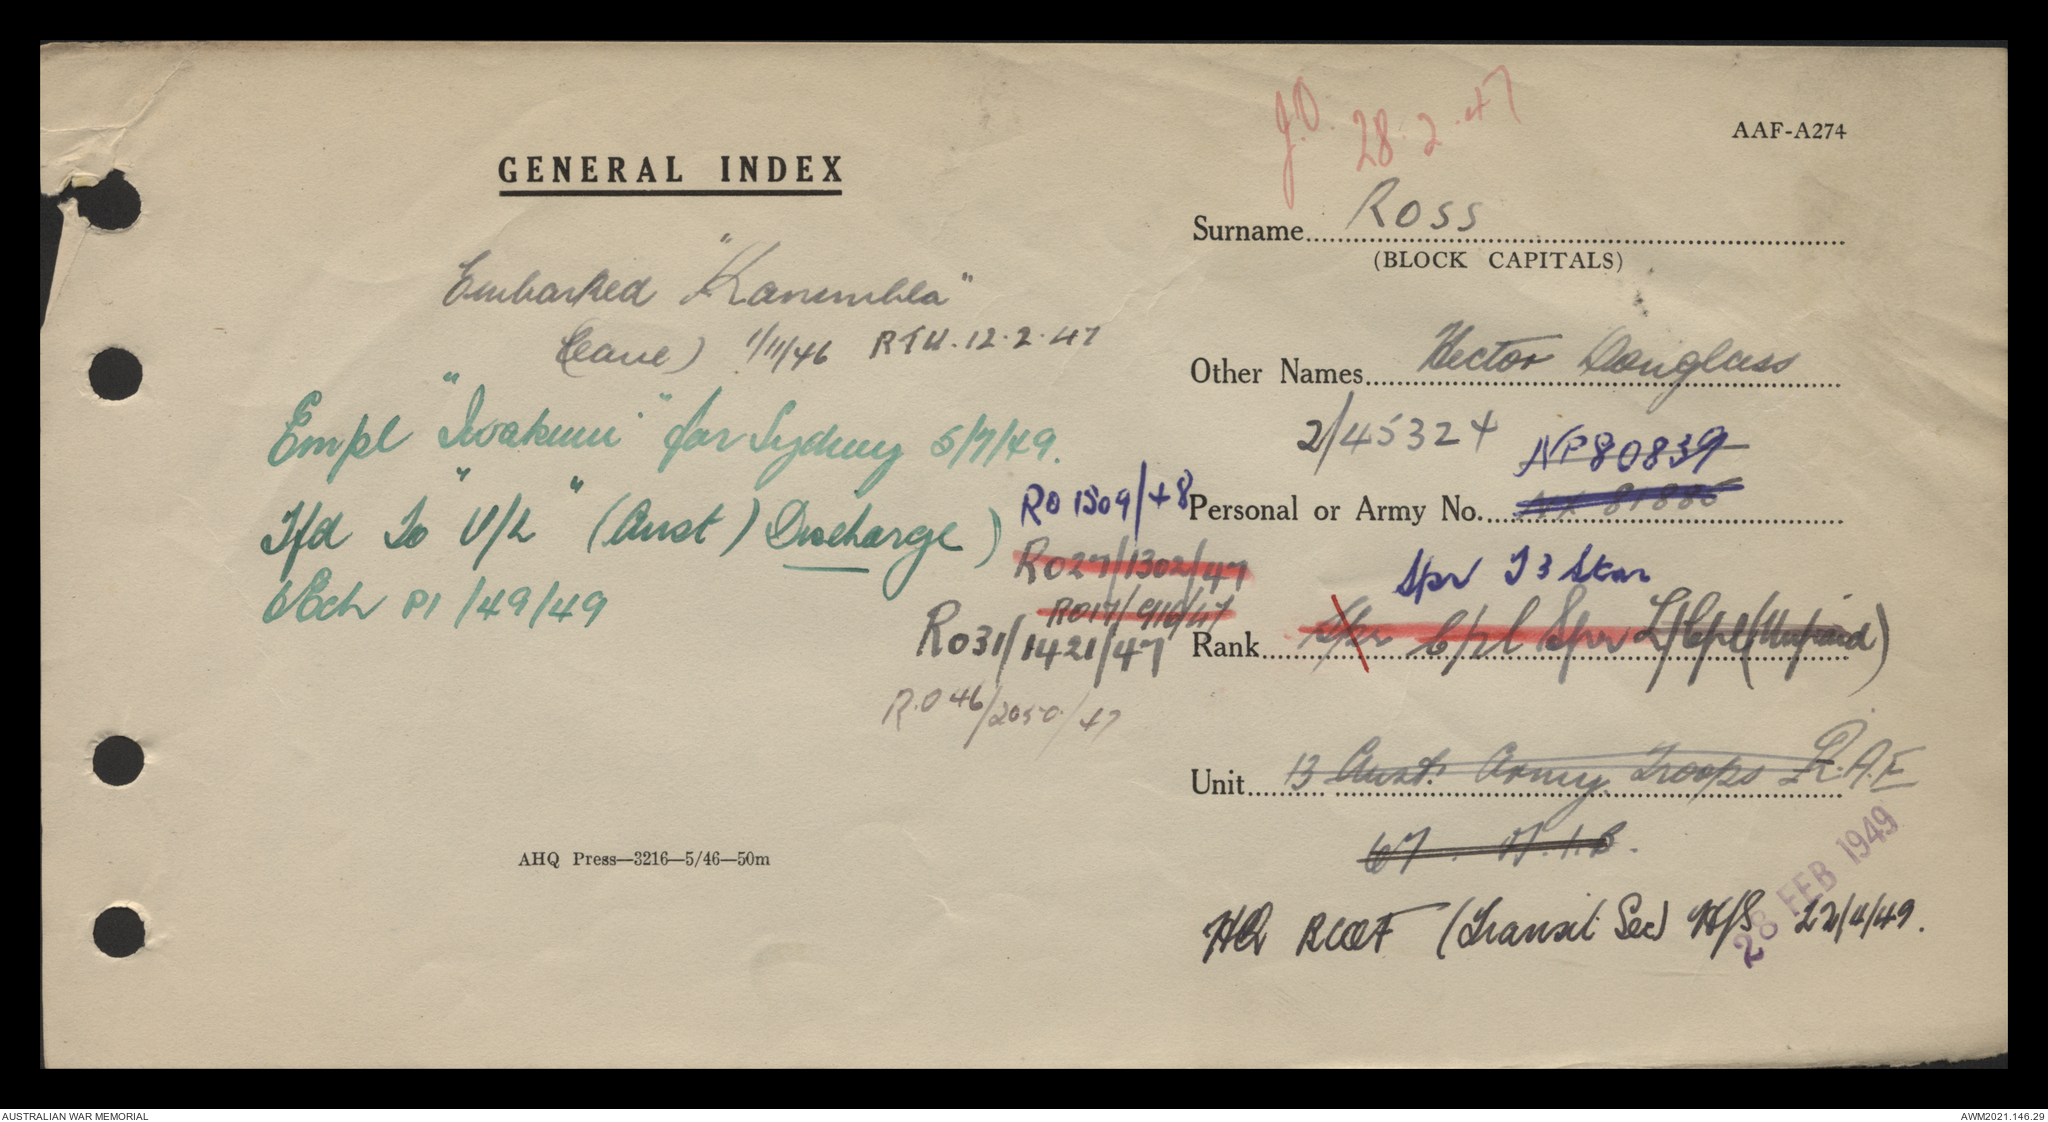 GENERAL INDEX
Embarked "Kanimbla"
(Leave) 1/11/46 RTU. 12.2.47
Empl "Iwakuni" for Sydney 5/7/49.
Tfd To "V/L" (Aust) Discharge)
Ech P1/49/49
AHQ Press—3216—5/46—50m
RO 1509/48
RO27/1302/47
RO17/916/47
RO31/1421/47
R.O 46/2050/47
J.D. 28.2.47
AAF-A274
Surname ROSS
(BLOCK CAPITALS)
Other Names Hector Douglass
2/45324 NP80839
Personal or Army No. NX 81886
Spr T3 Star
Rank Spr Cpl Spr L/Cpl (Unpaid)
Unit 13 Aust. Army Troops R.A.E
67.
28 FEB 1949
HQ BCOF (Transit Sec) H/S 22/4/49.
AUSTRALIAN WAR MEMORIAL
AWM2021.146.29